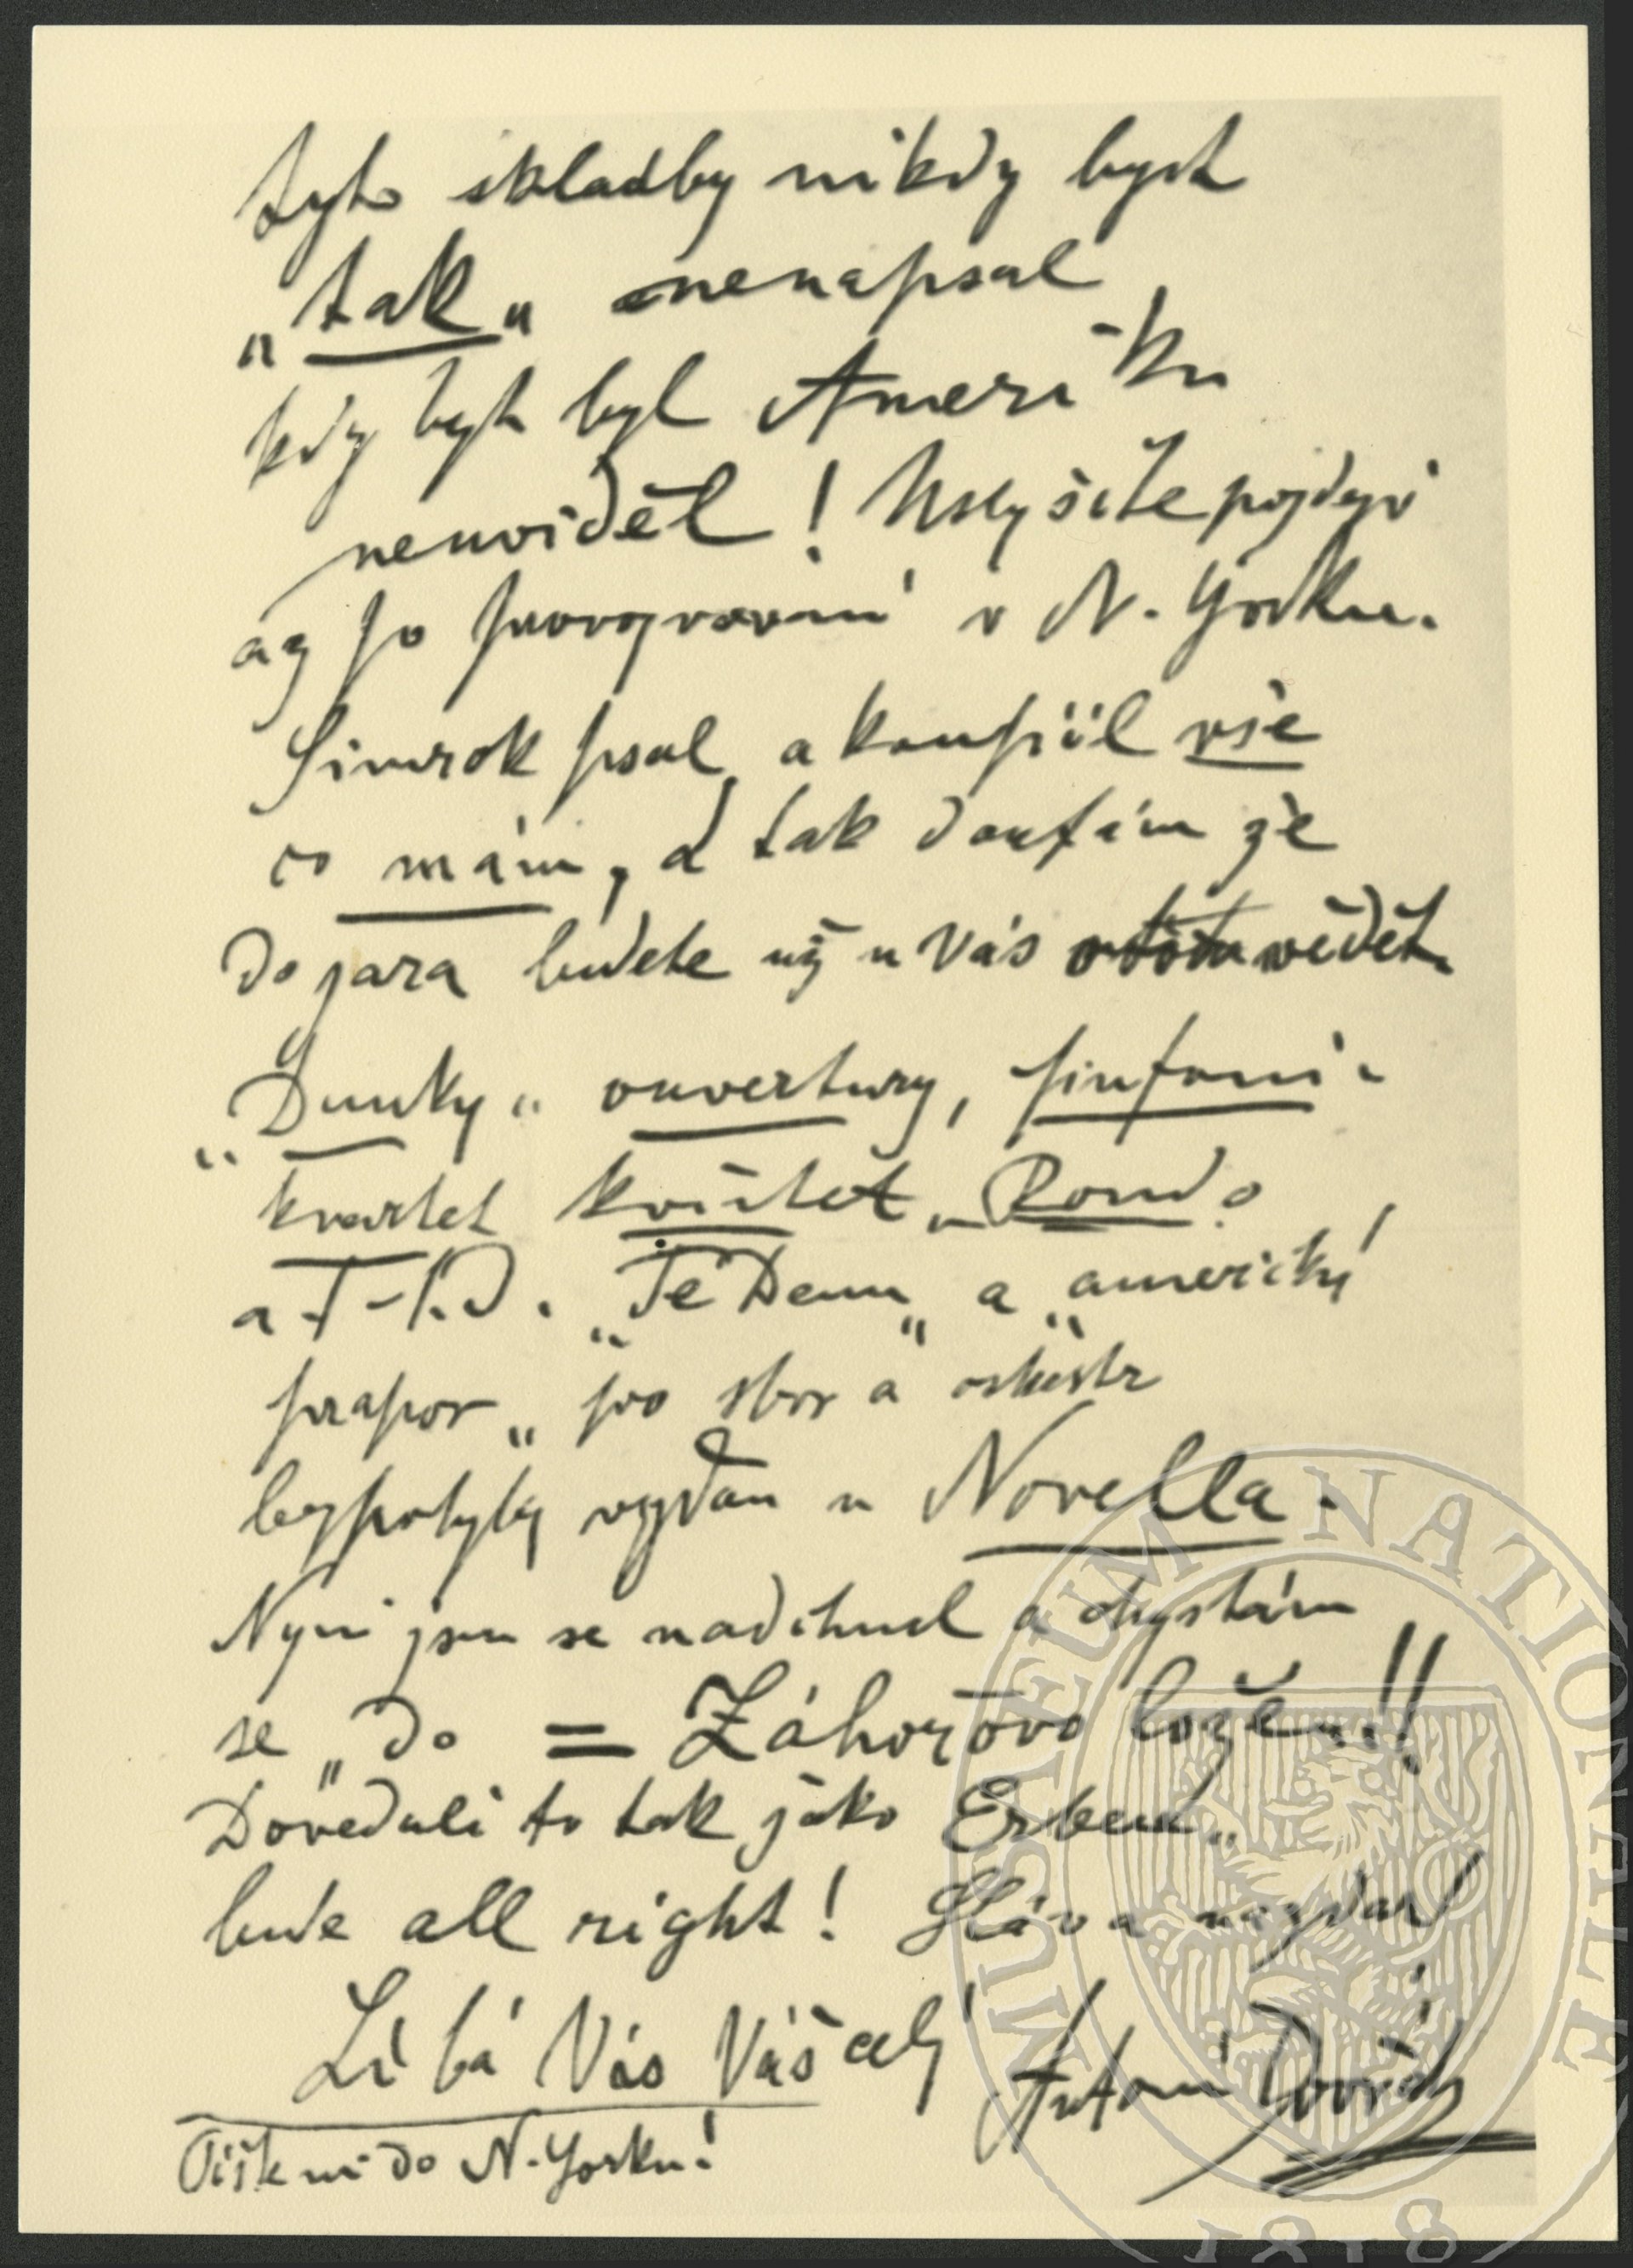 tyto skladby nikdy bych
„tak„ nenapsal
kdy bych byl Ameriku
neuviděl! Uslyšíte pojdeji
až po provozování v N. Yorku.
Simrok psal, a koupil vše
co mám, a tak doufám že
do jara budete už u Vás vědět.
„Dumky„ ouvertury, sinfoni
kvartet kvintet „Rondo
a.T.D. „Te Deum„ a „americký
prapor„ pro sbor a orkestr
bezpochyby vydán u Novella.
Nyní jsem se nadchnul a chystám
se „do = Záhořovo lože„!!
Doveduli to tak jako Erben„
bude all right! Sláva nazdar!
Líbá Vás Váš celý
Antonín Dvořák
Pište mi do N. Yorku!
MUSAEUM NATIONALE
1818